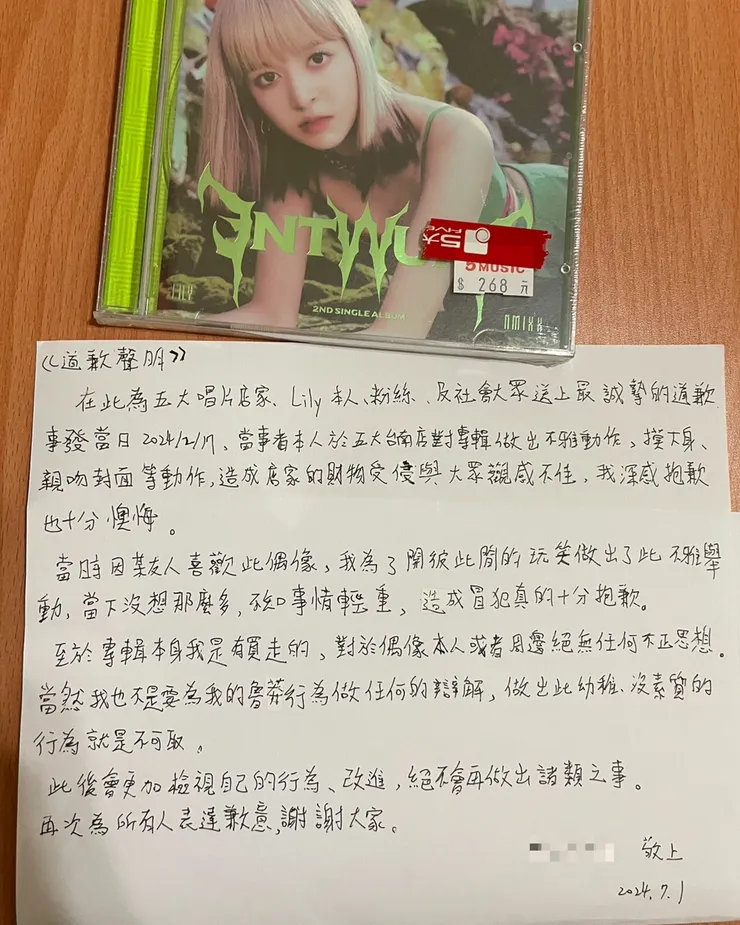 ENTWU
LILY
2ND SINGLE ALBUM
NMIXX
5大
FIVE
5 MUSIC
$ 268 元
《道歉聲明》
在此為五大唱片店家、Lily 本人、粉絲、及社會大眾送上最誠摯的道歉
事發當日 2024/2/17,當事者本人於五大台南店對專輯做出不雅動作,摸下身、
親吻封面等動作,造成店家的財物受侵與大眾觀感不佳,我深感抱歉
也十分懊悔。
當時因某友人喜歡此偶像,我為了開彼此間的玩笑做出了此不雅舉
動,當下沒想那麼多,不知事情輕重,造成冒犯真的十分抱歉。
至於專輯本身我是有買走的,對於偶像本人或者周邊絕無任何不正思想。
當然我也不是要為我的魯莽行為做任何的辯解,做出此幼稚、沒素質的
行為就是不可取。
此後會更加檢視自己的行為、改進,絕不會再做出諸類之事。
再次為所有人表達歉意,謝謝大家。
敬上
2024.7.1